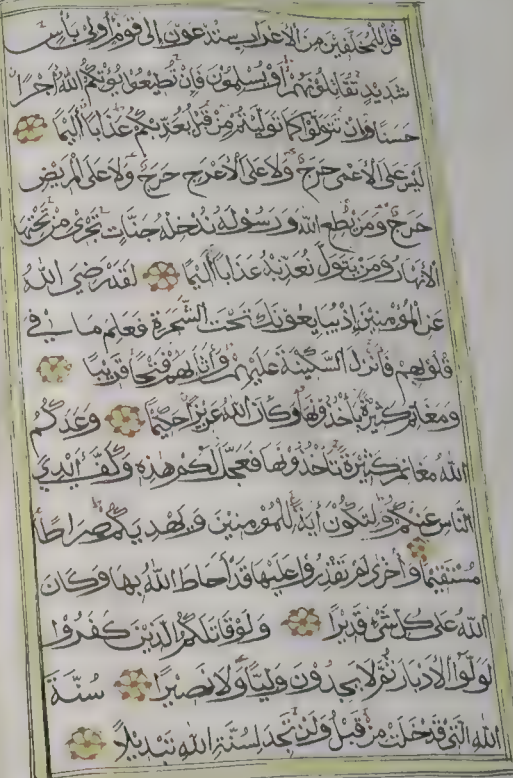 قُلْ لِلْمُخَلَّفِينَ مِنَ الْأَعْرَابِ سَتُدْعَوْنَ إِلَى قَوْمٍ أُولِي بَأْسٍ
شَدِيدٍ تُقَاتِلُونَهُمْ أَوْ يُسْلِمُونَ فَإِنْ تُطِيعُوا يُؤْتِكُمُ اللَّهُ أَجْرًا
حَسَنًا وَإِنْ تَتَوَلَّوْا كَمَا تَوَلَّيْتُمْ مِنْ قَبْلُ يُعَذِّبْكُمْ عَذَابًا أَلِيمًا
لَيْسَ عَلَى الْأَعْمَى حَرَجٌ وَلَا عَلَى الْأَعْرَجِ حَرَجٌ وَلَا عَلَى الْمَرِيضِ
حَرَجٌ وَمَنْ يُطِعِ اللَّهَ وَرَسُولَهُ نُدْخِلْهُ جَنَّاتٍ تَجْرِي مِنْ تَحْتِهَا
الْأَنْهَارُ وَمَنْ يَتَوَلَّ نُعَذِّبْهُ عَذَابًا أَلِيمًا لَقَدْ رَضِيَ اللَّهُ
عَنِ الْمُؤْمِنِينَ إِذْ يُبَايِعُونَكَ تَحْتَ الشَّجَرَةِ فَعَلِمَ مَا فِي
قُلُوبِهِمْ فَأَنْزَلَ السَّكِينَةَ عَلَيْهِمْ وَأَثَابَهُمْ فَتْحًا قَرِيبًا
وَمَغَانِمَ كَثِيرَةً يَأْخُذُونَهَا وَكَانَ اللَّهُ عَزِيزًا حَكِيمًا وَعَدَكُمُ
اللَّهُ مَغَانِمَ كَثِيرَةً تَأْخُذُونَهَا فَعَجَّلَ لَكُمْ هَذِهِ وَكَفَّ أَيْدِيَ
النَّاسِ عَنْكُمْ وَلِتَكُونَ آيَةً لِلْمُؤْمِنِينَ وَيَهْدِيَكُمْ صِرَاطًا
مُسْتَقِيمًا وَأُخْرَى لَمْ تَقْدِرُوا عَلَيْهَا قَدْ أَحَاطَ اللَّهُ بِهَا وَكَانَ
اللَّهُ عَلَى كُلِّ شَيْءٍ قَدِيرًا وَلَوْ قَاتَلَكُمُ الَّذِينَ كَفَرُوا
لَوَلَّوُا الْأَدْبَارَ ثُمَّ لَا يَجِدُونَ وَلِيًّا وَلَا نَصِيرًا سُنَّةَ
اللَّهِ الَّتِي قَدْ خَلَتْ مِنْ قَبْلُ وَلَنْ تَجِدَ لِسُنَّةِ اللَّهِ تَبْدِيلًا